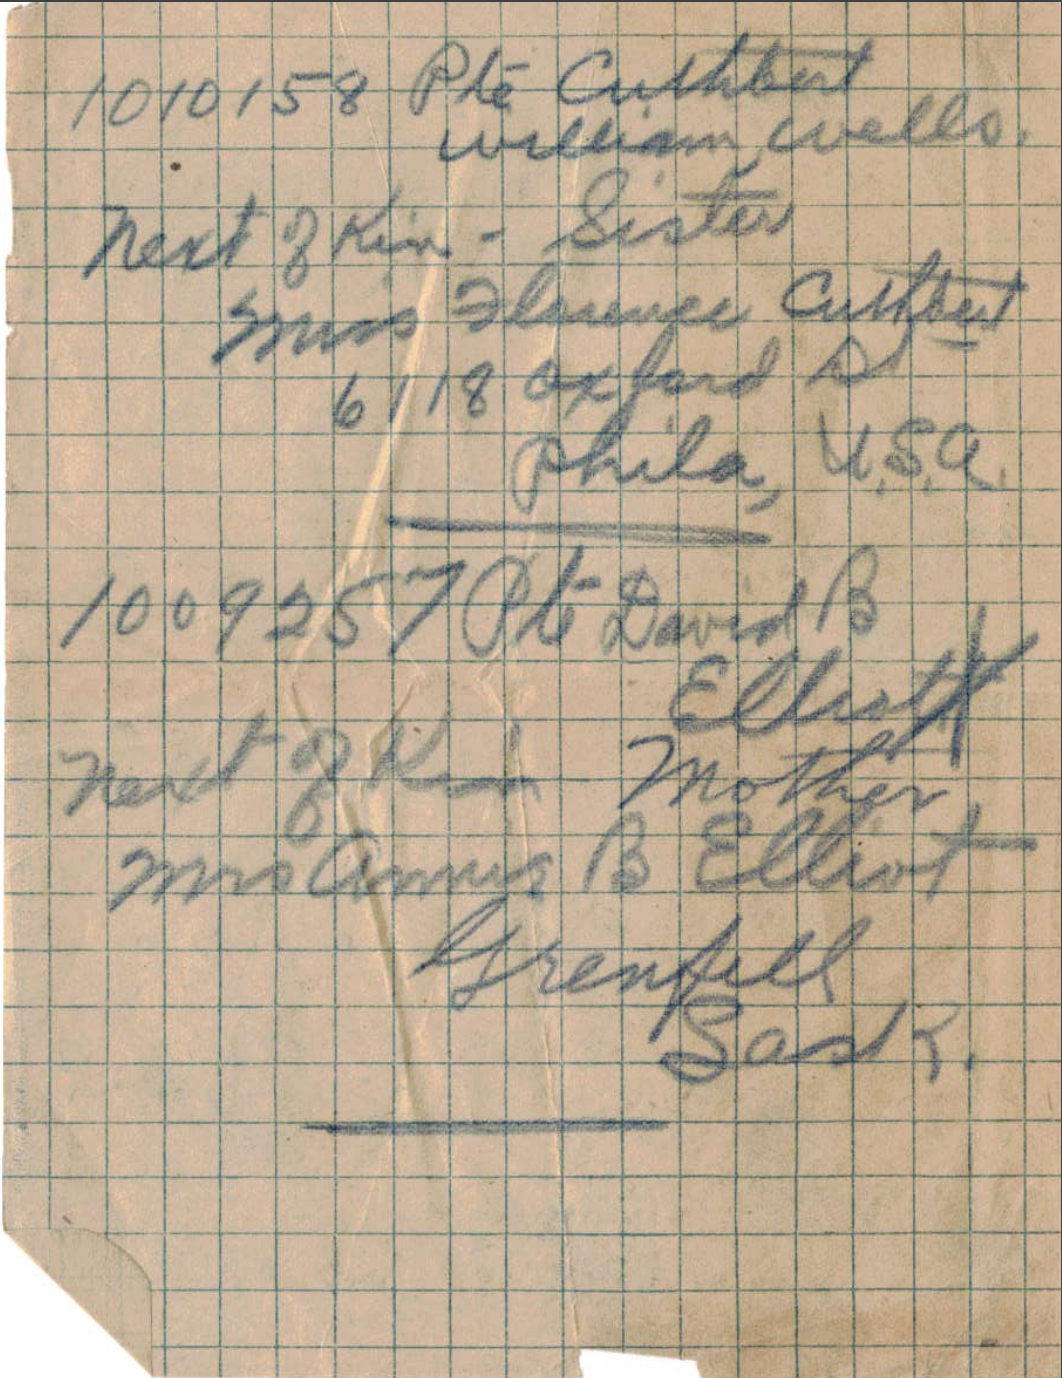 1010158 Pte Cuthbert
William Wells.
Next of Kin - Sister
Miss Florence Cuthbert
6118 Oxford St
Phila, U.S.A.
1009257 Pte David B
Elliott
Next of Kin Mother,
Mrs Annis B Elliot
Grenfell
Sask.